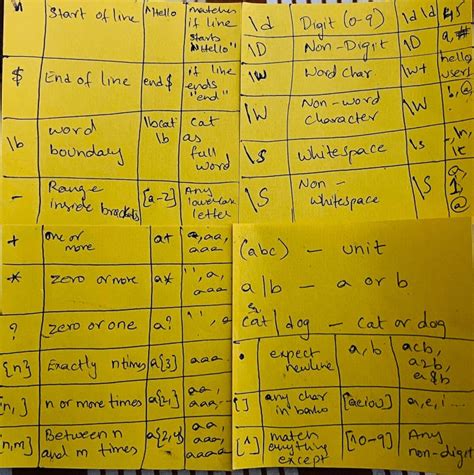 ^ Start of line ^Hello matches if line starts "Hello"
$ End of line end$ if line ends "end"
\b word boundary \bcat\b cat as full word
- Range inside brackets [a-z] Any lowercase letter
\d Digit (0-9) \d\d 45
\D Non-Digit \D a, #
\w Word char \w+ hello user1
\W Non-word character \W
\s Whitespace \s
\S Non-whitespace \S a 1 @
+ one or more a+ a, aa, aaa
* zero or more a* '', a, aaa
? zero or one a? '', a
{n} Exactly n times a{3} aaa
{n,} n or more times a{2,} aa, aaa, ...
{n,m} Between n and m times
(abc) - unit
a|b - a or b
cat|dog - cat or dog
. expect newline a.b acb, a2b, a&b
[] any char in [aeiou] a, e, i ...
[^] match anything except [^0-9] Any non-digit